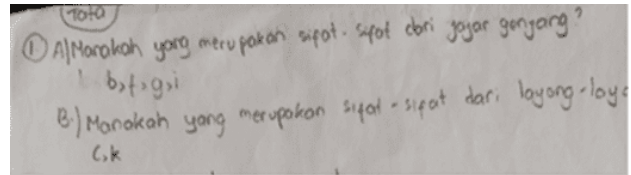 Tata
① A) Manakah yang merupakan sifat-sifat dari jajar genjang?
b, f, g, i
B.) Manakah yang merupakan sifat-sifat dari layang-laya
C, k